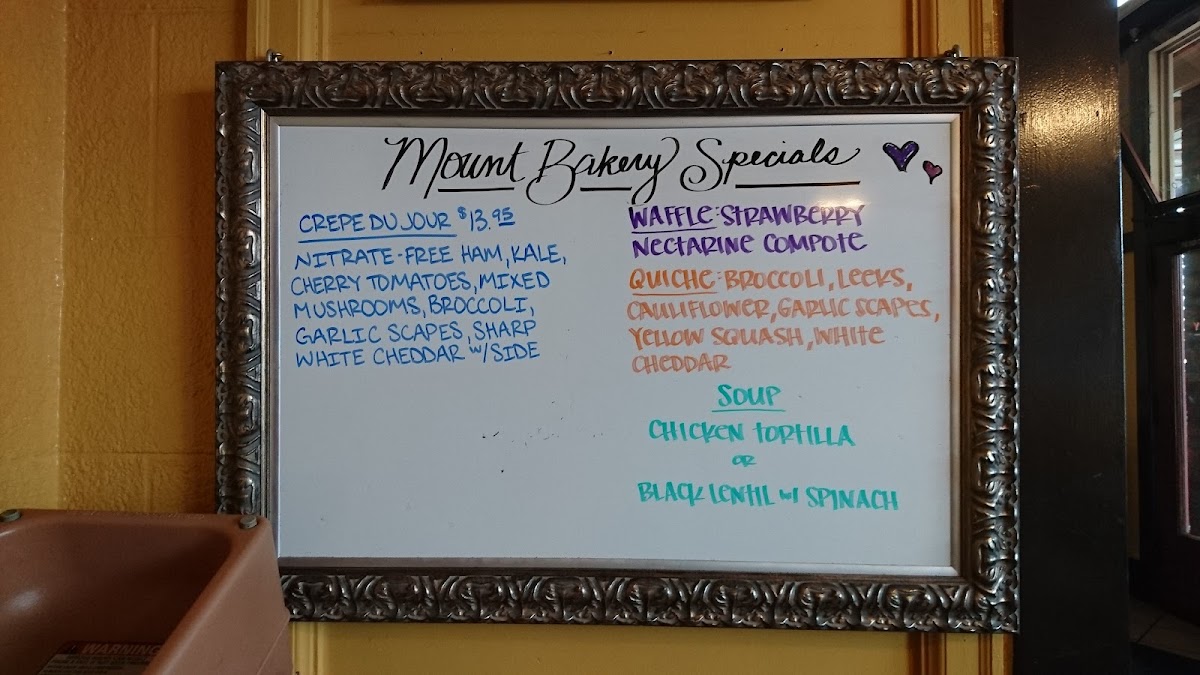 Mount Bakery Specials
CREPE DU JOUR $13.95
NITRATE-FREE HAM, KALE,
CHERRY TOMATOES, MIXED
MUSHROOMS, BROCCOLI,
GARLIC SCAPES, SHARP
WHITE CHEDDAR w/SIDE
WAFFLE: STRAWBERRY
NECTARINE COMPOTE
QUICHE: BROCCOLI, LEEKS,
CAULIFLOWER, GARLIC SCAPES,
YELLOW SQUASH, WHITE
CHEDDAR
SOUP
CHICKEN TORTILLA
OR
BLACK LENTIL w/ SPINACH
WARNING